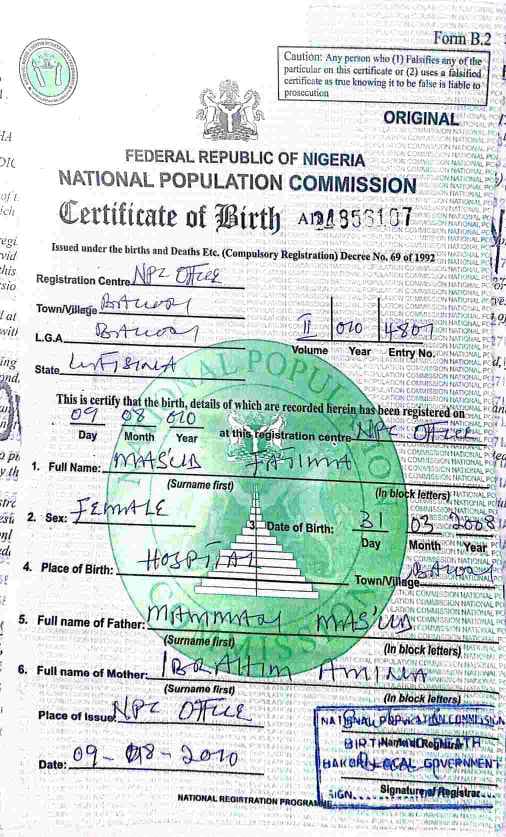 Form B.2
Caution: Any person who (1) Falsifies any of the
particular on this certificate or (2) uses a falsified
certificate as true knowing it to be false is liable to
prosecution
ORIGINAL
FEDERAL REPUBLIC OF NIGERIA
NATIONAL POPULATION COMMISSION
Certificate of Birth
Issued under the births and Deaths Etc. (Compulsory Registration) Decree No. 69 of 1992
Registration Centre NPC OFFICE
Town/Village
L.G.A
II 010 4807
Volume Year Entry No.
State
This is certify that the birth, details of which are recorded herein has been registered on
09 08 010 at this registration centre NPC OFFICE
Day Month Year
1. Full Name: MAS'UD FATIMA
(Surname first) (In block letters)
2. Sex: FEMALE 3. Date of Birth: 31 03 2008
Day Month Year
4. Place of Birth: HOSPITAL Town/Village
5. Full name of Father: MAS'UD
(Surname first) (In block letters)
6. Full name of Mother: IBRAHIM AMINA
(Surname first) (In block letters)
Place of Issue: NPC OFFICE
NATIONAL POPULATION COMMISSION
Name of Registrar
LOCAL GOVERNMENT
Date: 09-08-2010
SIGN. Signature of Registrar
NATIONAL REGISTRATION PROGRAMME